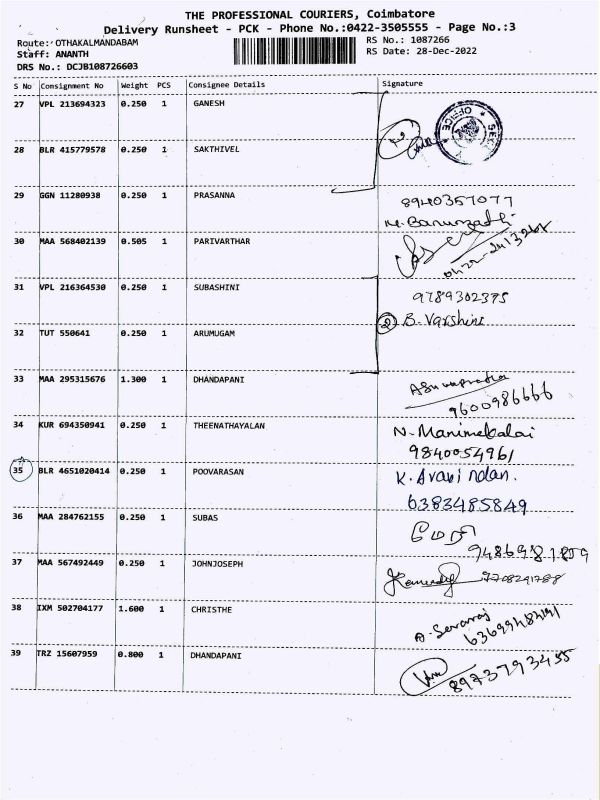 THE PROFESSIONAL COURIERS, Coimbatore
Delivery Runsheet - PCK - Phone No.:0422-3505555 - Page No.:3
Route: OTHAKALMANDABAM RS No.: 1087266
Staff: ANANTH RS Date: 28-Dec-2022
DRS No.: DCJB108726603
S No Consignment No Weight PCS Consignee Details Signature
27 VPL 213694323 0.250 1 GANESH
OFFICE
28 BLR 415779578 0.250 1 SAKTHIVEL
29 GGN 11280938 0.250 1 PRASANNA 8940357077
30 MAA 568402139 0.505 1 PARIVARTHAR
31 VPL 216364530 0.250 1 SUBASHINI 9789302375
② B. Varshini
32 TUT 550641 0.250 1 ARUMUGAM
33 MAA 295315676 1.300 1 DHANDAPANI
9600986666
34 KUR 694350941 0.250 1 THEENATHAYALAN N. Manimekalai
9840054961
35 BLR 4651020414 0.250 1 POOVARASAN K. Aravindan.
6383485849
36 MAA 284762155 0.250 1 SUBAS
37 MAA 567492449 0.250 1 JOHNJOSEPH
38 IXM 502704177 1.600 1 CHRISTHE
39 TRZ 15607959 0.800 1 DHANDAPANI
8973793455